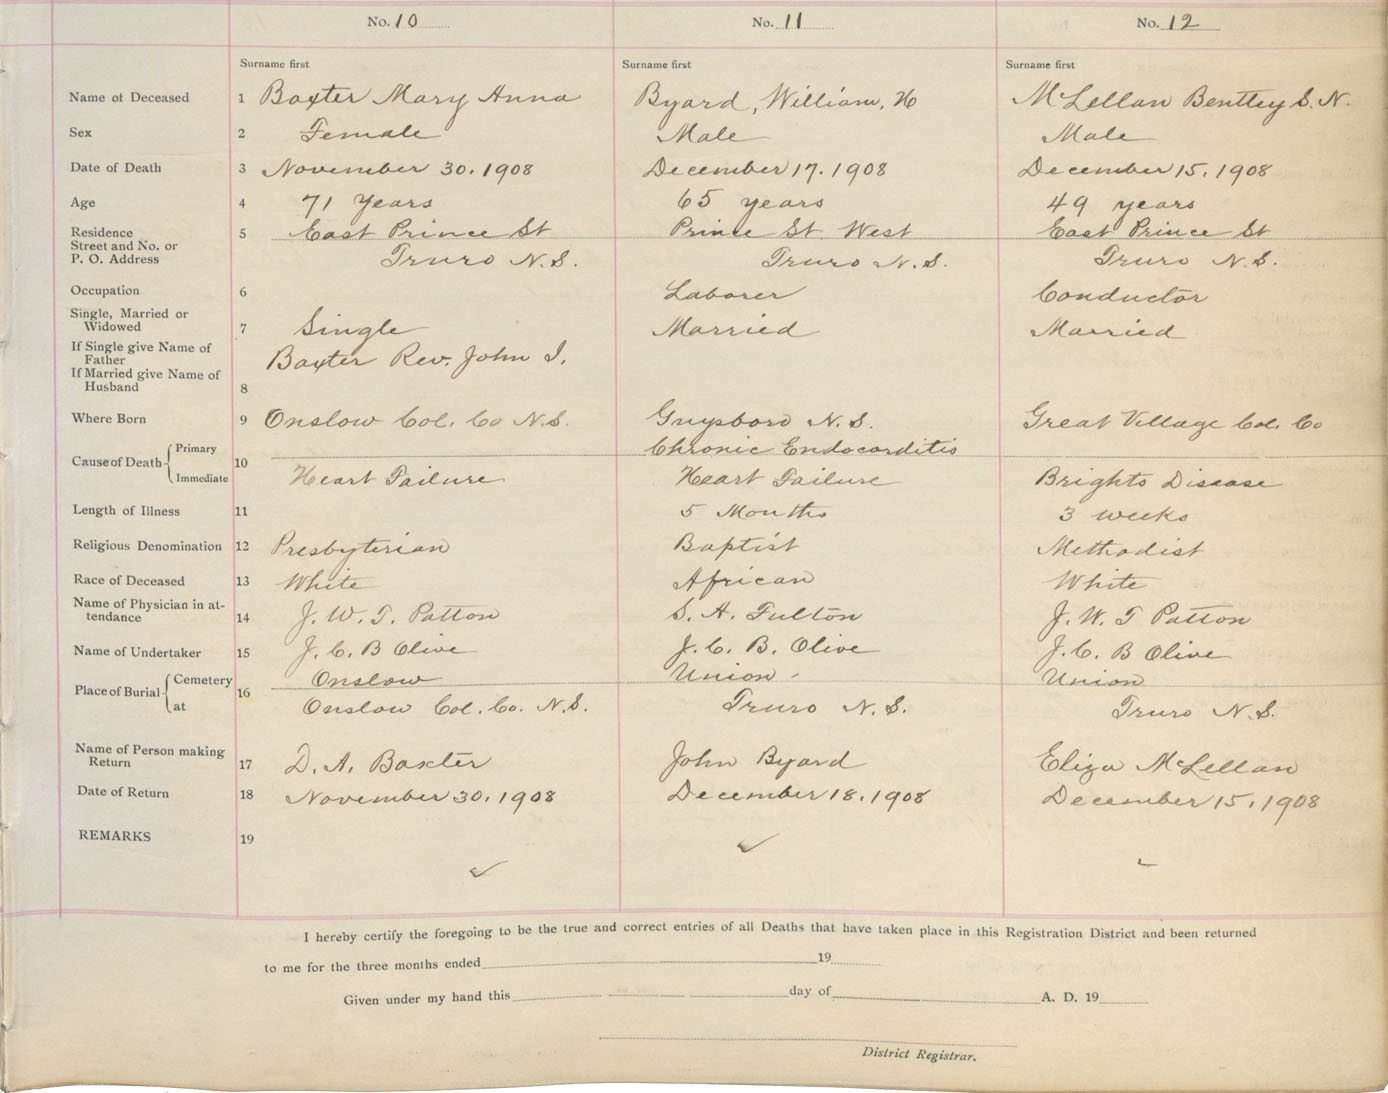 No. 10 No. 11 No. 12
Surname first Surname first Surname first
Name of Deceased 1 Baxter Mary Anna Byard, William, H McLellan Bentley S. N.
Sex 2 Female Male Male
Date of Death 3 November 30. 1908 December 17. 1908 December 15. 1908
Age 4 71 Years 65 years 49 years
Residence 5 East Prince St Prince St West East Prince St
Street and No. or
P. O. Address Truro N.S. Truro N.S. Truro N.S.
Occupation 6 Laborer Conductor
Single, Married or
Widowed 7 Single Married Married
If Single give Name of
Father Baxter Rev. John I.
If Married give Name of
Husband 8
Where Born 9 Onslow Col. Co N.S. Guysboro N.S. Great Village Col. Co
Cause of Death 10 Primary Chronic Endocarditis
Immediate Heart Failure Heart Failure Brights Disease
Length of Illness 11 5 Months 3 weeks
Religious Denomination 12 Presbyterian Baptist Methodist
Race of Deceased 13 White African White
Name of Physician in at-
tendance 14 J. W. T. Patton S. A. Fulton J. W. T Patton
Name of Undertaker 15 J. C. B Olive J. C. B. Olive J. C. B Olive
Place of Burial 16 Cemetery Onslow Union Union
at Onslow Col. Co. N.S. Truro N.S. Truro N.S.
Name of Person making
Return 17 D. A. Baxter John Byard Eliza McLellan
Date of Return 18 November 30. 1908 December 18. 1908 December 15, 1908
REMARKS 19
I hereby certify the foregoing to be the true and correct entries of all Deaths that have taken place in this Registration District and been returned
to me for the three months ended 19
Given under my hand this day of A. D. 19
District Registrar.